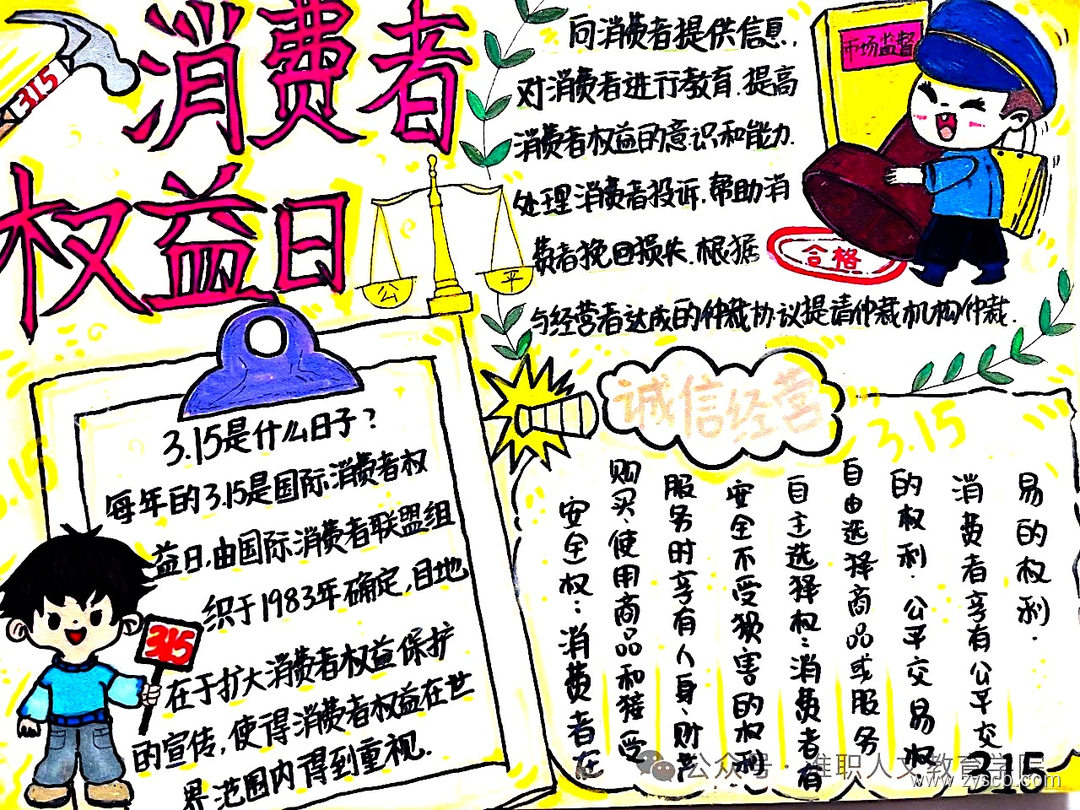 消费者
权益日
315
公 平
向消费者提供信息,
对消费者进行教育.提高
消费者权益的意识和能力.
处理消费者投诉.帮助消
费者挽回损失.根据
与经营者达成的仲裁协议提请仲裁机构仲裁.
市场监督
合格
3.15是什么日子?
每年的3.15是国际消费者权
益日,由国际消费者联盟组
织于1983年确定,目地
在于扩大消费者权益保护
的宣传,使得消费者权益在世
界范围内得到重视.
315
3.15
诚信经营
3.15
安全权:消费者在
购买、使用商品和接受
服务时享有人身、财产
安全不受损害的权利
自主选择权:消费者有
自由选择商品或服务
的权利.公平交易权
消费者享有公平交
易的权利.
315
公众号